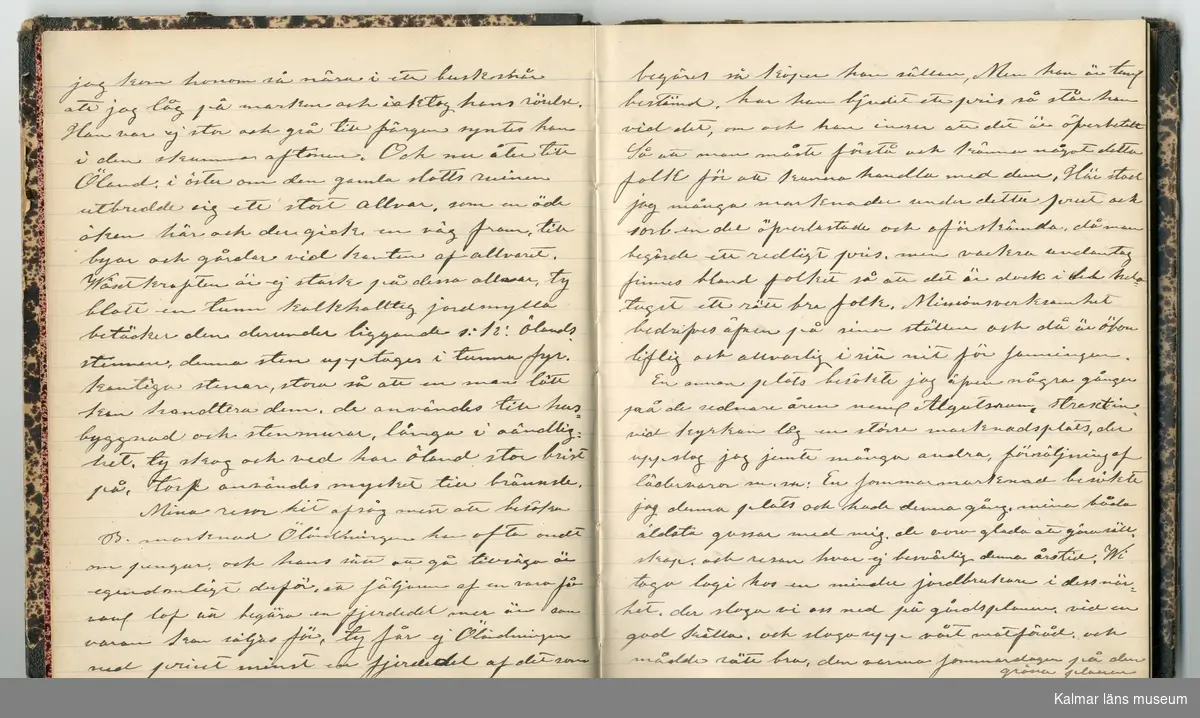 jag kom honom så nära i ett buskskär
att jag låg på marken och iakttog hans rörelse.
Han var ej stor och grå till färgen syntes han
i den skumma aftonen. Och nu åter till
Öland. i öster om den gamla slotts ruinen
utbredde sig ett stort allvar, som en öde
öken här och der gick en väg fram, till
byar och gårdar vid kanten af allvaret.
Växtkraften är ej stark på dessa allvar, ty
blott en tunn kalkhalttig jordmylla
betäcker den derunder liggande s: k: Ölands
stennen, denna sten upptages i tunna fyr-
kantiga stenar, stora så att en man lätt
kan handtera dem. de användes till hus-
byggnad och stenmurar, långa i oändlig-
het. ty skog och ved har Öland stor brist
på. torf användes mycket till bränsle.
Mina resor hit afsåg mest att besöka
B. marknad Ölänningen har ofta ondt
om pengar, och hans sätt att gå tillväga är
egendomligt derför, att säljaren af en vara får
vara lof att begära en fjerdedel mer än som
varan kan säljas för. ty får ej Ölänningen
ned priset minst en fjerdedel af det som
begäres så köper han sällan, Men han är teml
bestämd. har han bjudit ett pris så står han
vid det, om och han inser att det är öfverbetalt
Så att man måste förstå och känna något detta
folk för att kunna handla med dem. Här stod
jag många marknader under dettta prut och
sorb. en del öfverlastade och oförskämda, då man
begärde ett redligt pris. men vackra undantag
finnes bland folket så att det är dock i det hela
taget ett rätt bra folk. Missionsverksamhet
bedrifves äfven på sina ställen och då är öbon
liflig och allvarlig i sitt nit för sanningen.
En annan plats besökte jag äfven några gånger
på de sednare åren neml Algutsrum, strax in-
vid kyrkan låg en större marknadsplats, der
uppslog jag jemte många andra, försäljning af
lädervaror m. m: En sommarmarknad besökte
jag denna plats och hade denna gång mina båda
äldsta gossar med mig. de voro glada att göra säll-
skap. och resan hvar ej besvärlig denna årstid. Vi
togo logi hos en mindre jordbrukare i dess när-
het. der slogo vi oss ned på gårdsplanen. vid en
god källa. och slogo upp vårt matförråd. och
mådde rätt bra, den varma sommardagen på den
gröna planen
Kalmar läns museum